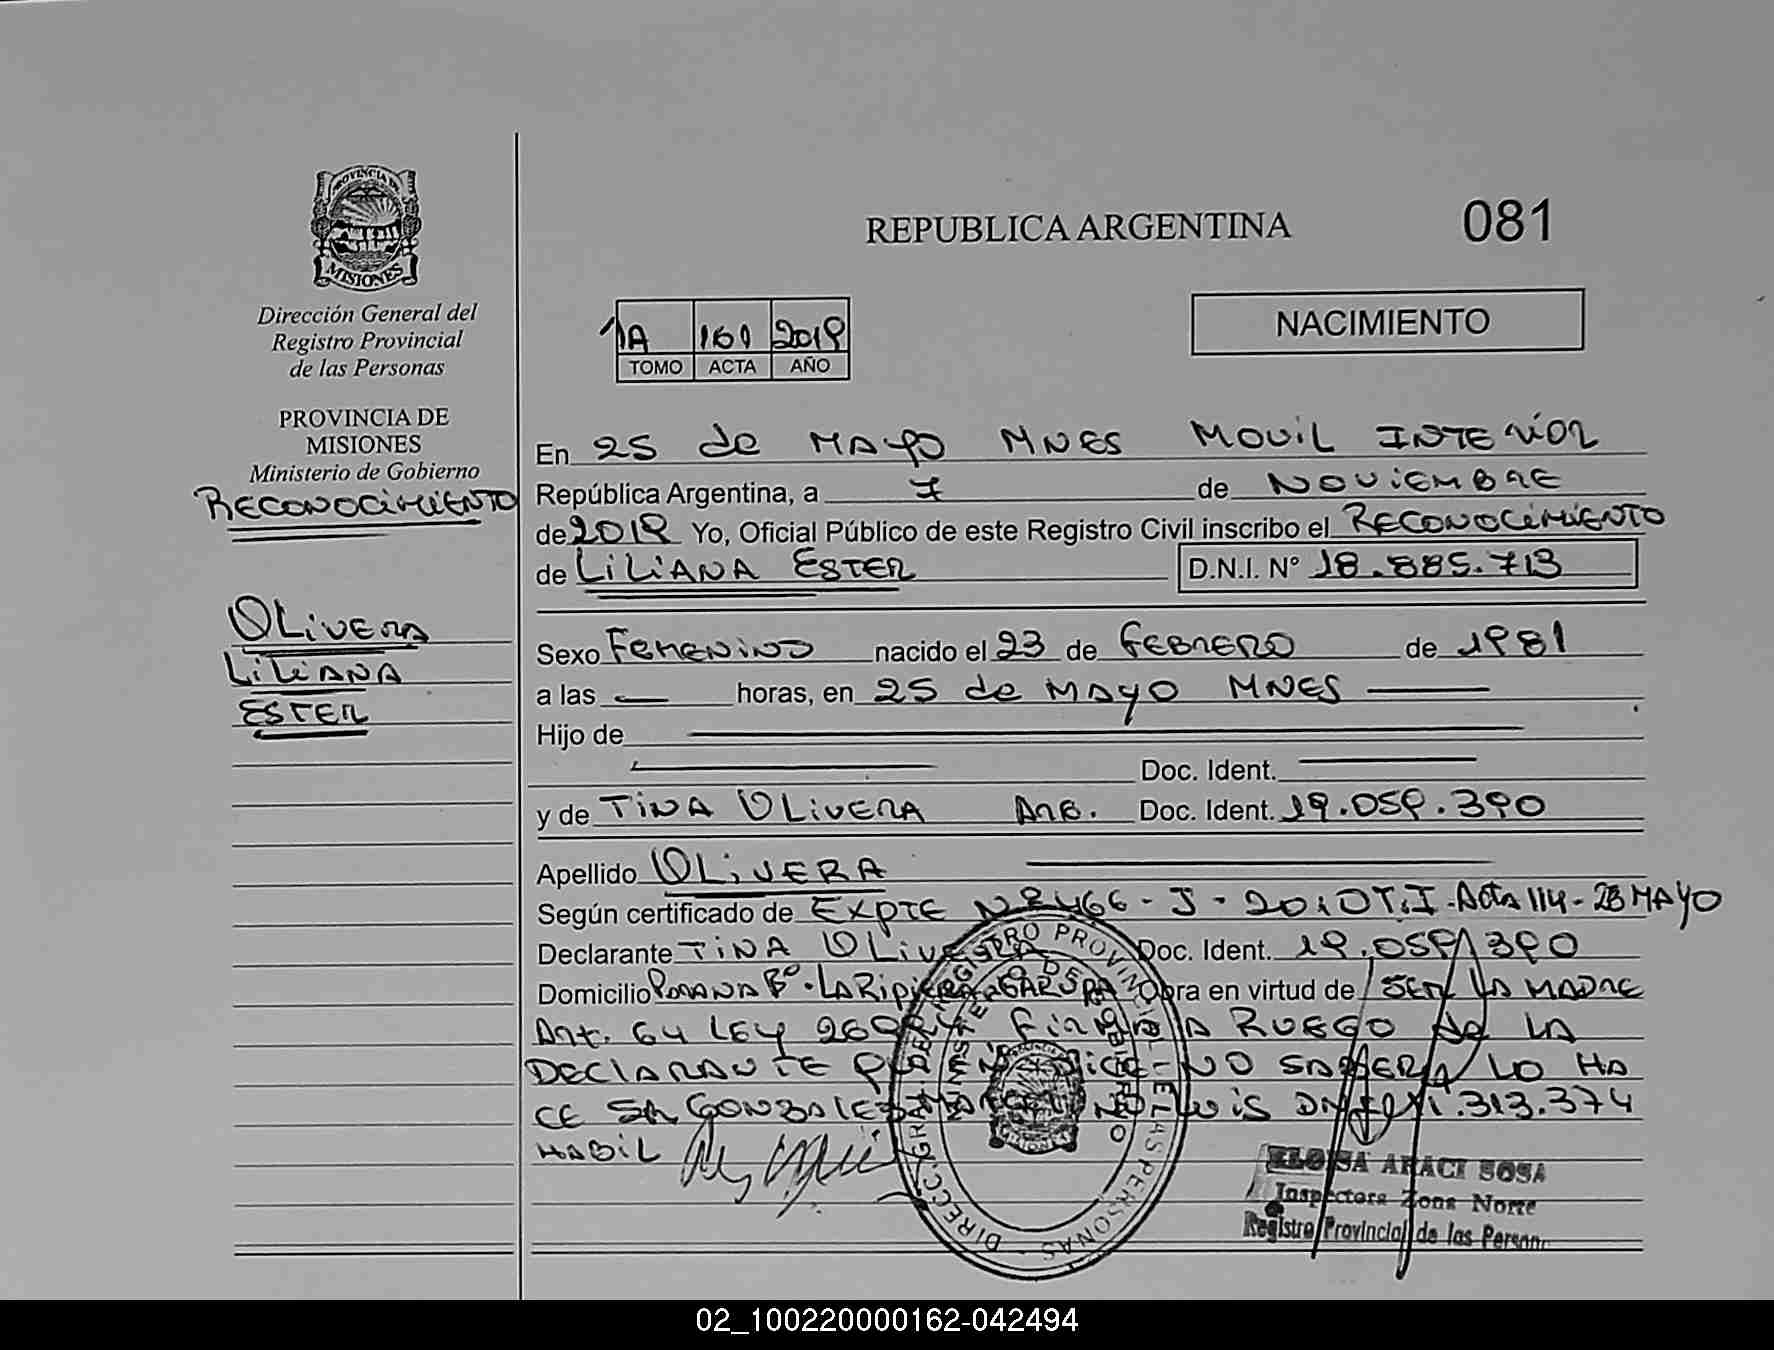 PROVINCIA DE
MISIONES
Dirección General del
Registro Provincial
de las Personas
PROVINCIA DE
MISIONES
Ministerio de Gobierno
RECONOCIMIENTO
OLIVERA
LILIANA
ESTER
REPUBLICA ARGENTINA
081
1A 161 2019
TOMO ACTA AÑO
NACIMIENTO
En 25 de MAYO MNES MOVIL INTERIOR
República Argentina, a 7 de NOVIEMBRE
de 2019 Yo, Oficial Público de este Registro Civil inscribo el RECONOCIMIENTO
de LILIANA ESTER D.N.I. N° 18.885.713
Sexo FEMENINO nacido el 23 de FEBRERO de 1981
a las — horas, en 25 de MAYO MNES
Hijo de
Doc. Ident.
y de TINA OLIVERA ARG. Doc. Ident. 19.059.390
Apellido OLIVERA
Según certificado de EXPTE Nº 466 - J - 2010 T.I - Acta 114 - 28 MAYO
Declarante TINA OLIVERA Doc. Ident. 19.059.390
Domicilio Bº LA GARUPA Obra en virtud de SER LA MADRE
Art. 64 LEY FIRMA A RUEGO de LA
DECLARANTE DICE NO SABER LO HA
CE SR GONZALEZ LUIS DNI .313.374
HABIL
DIRECC. GRAL. DEL REGISTRO PROVINCIAL DE LAS PERSONAS
MINISTERIO DE GOBIERNO
ELOISA ARACI SOSA
Inspectora Zona Norte
Registro Provincial de las Person
02_100220000162-042494